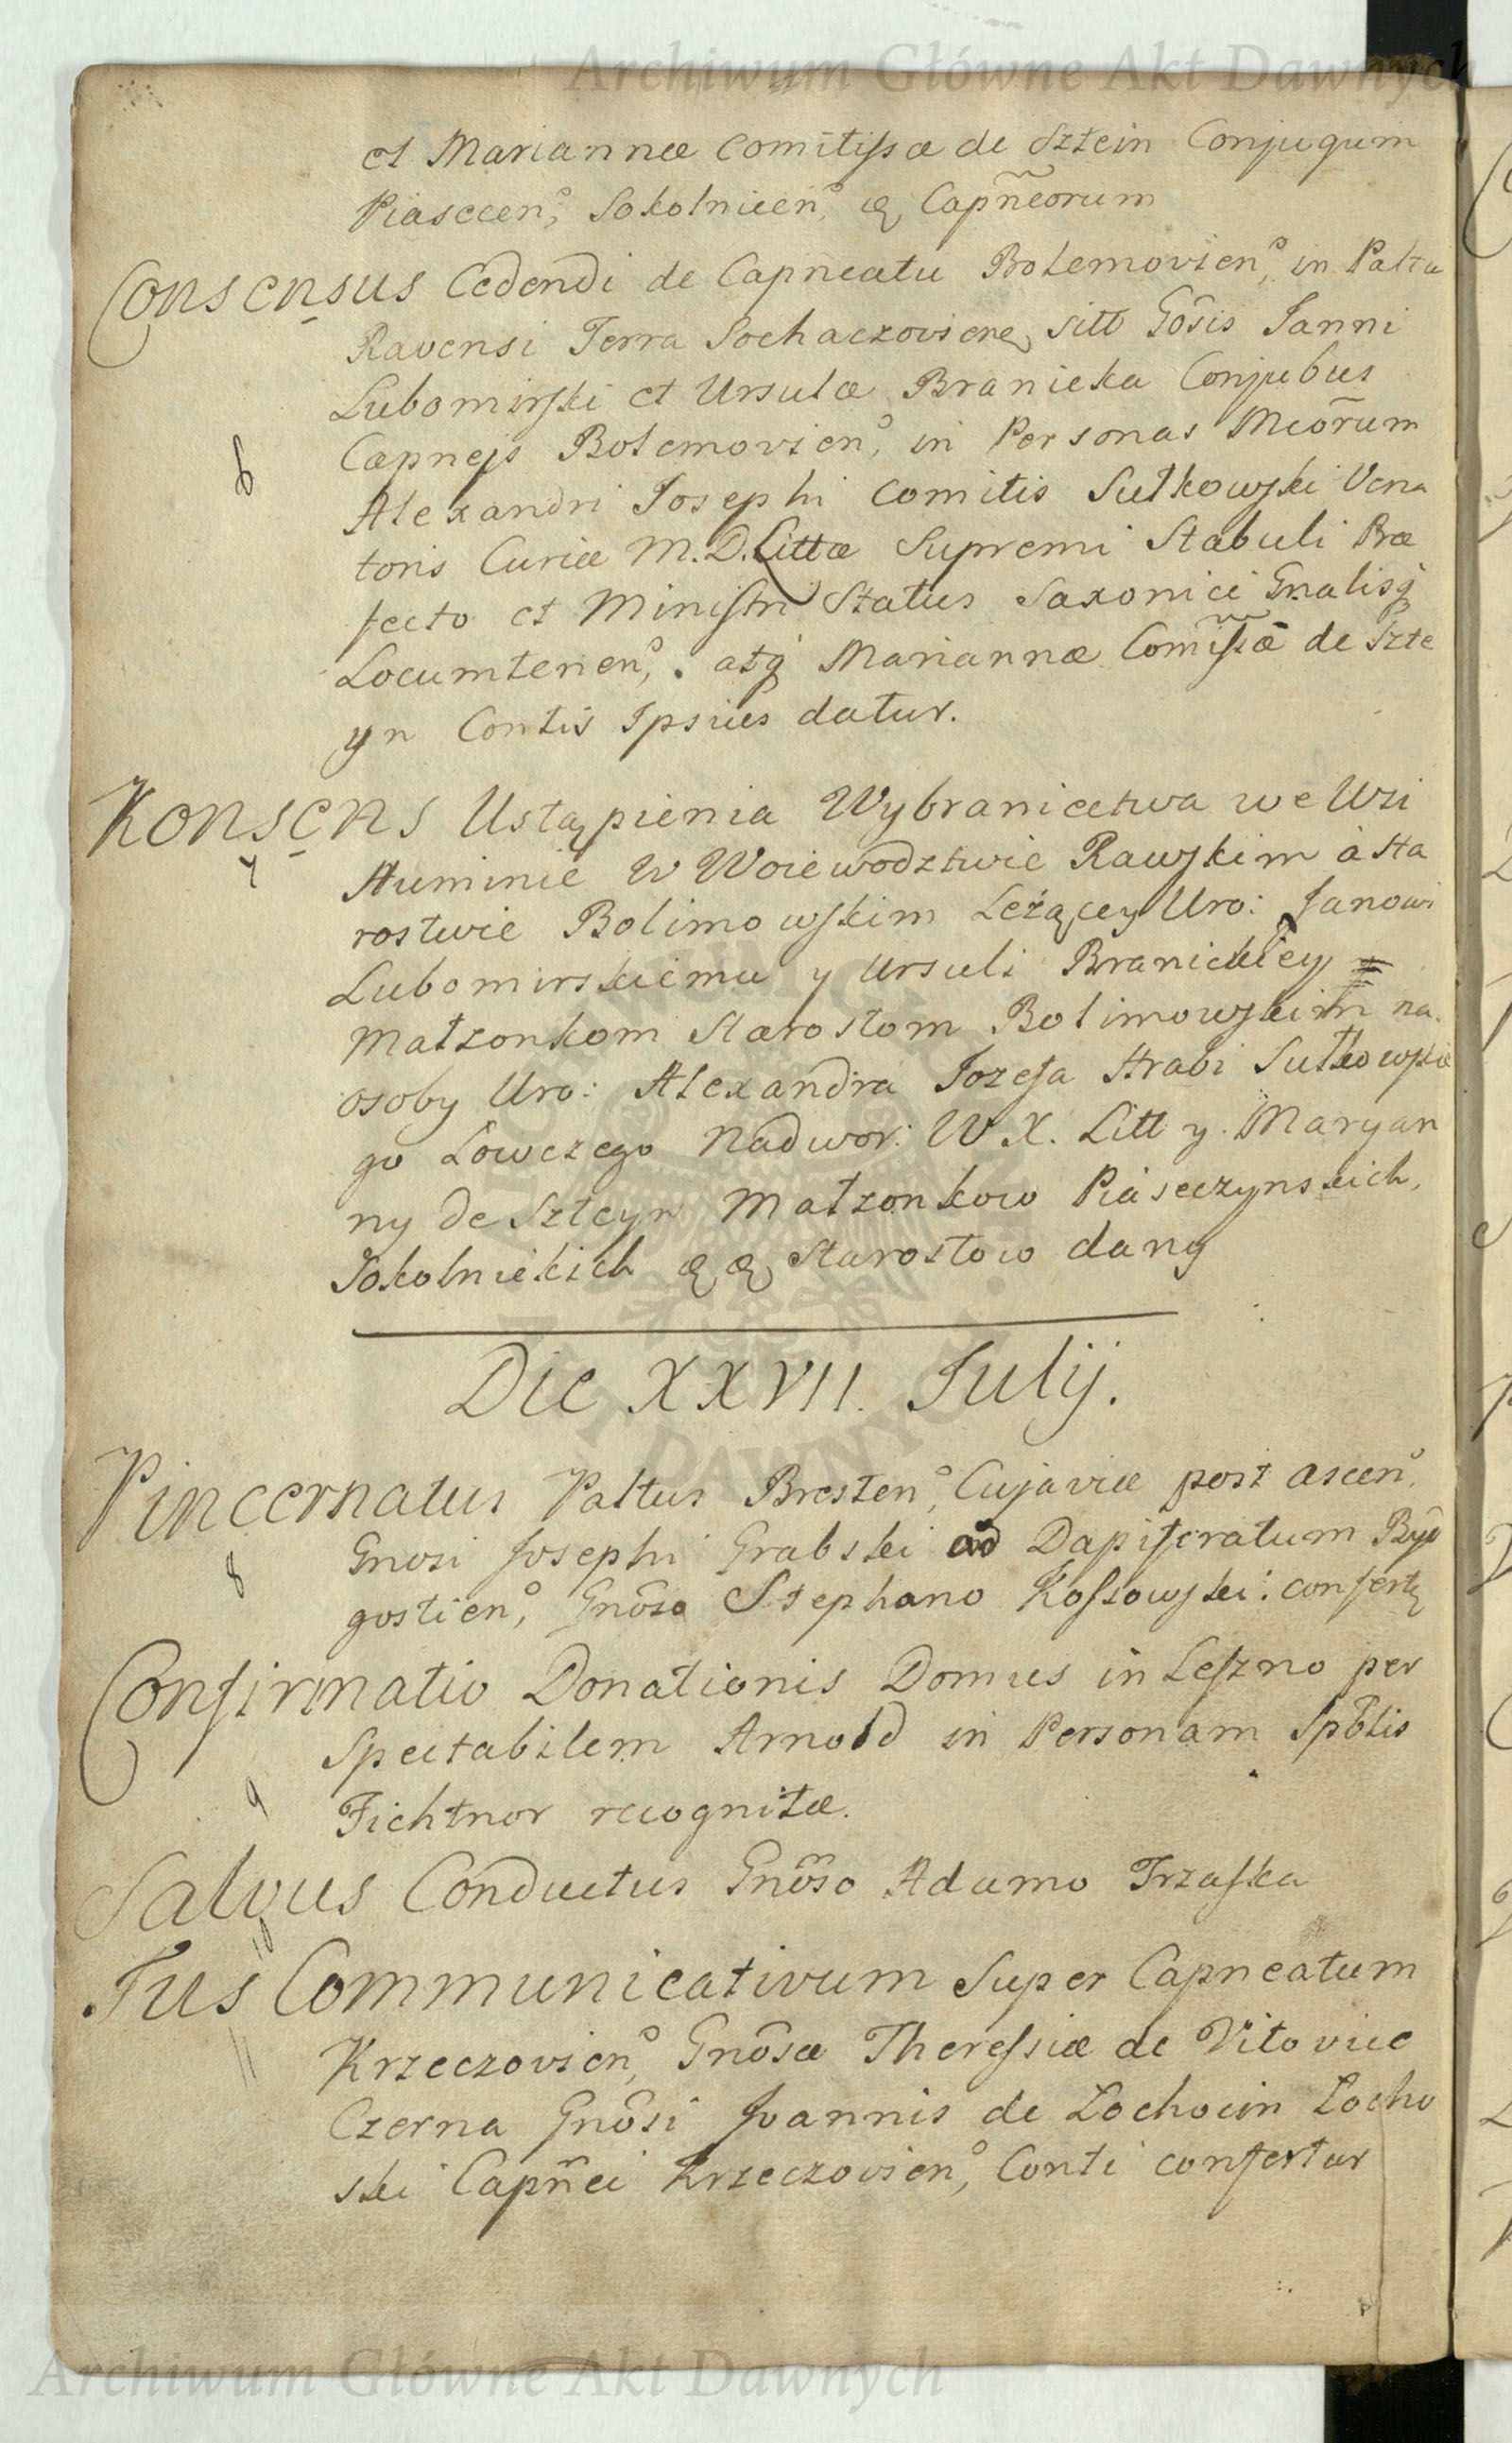 Archiwum Główne Akt Dawnych
et Mariannæ Comitissæ de Sztein Conjugum
Piasecen, Sokolnicen, & Capñeorum
Consensus Cedendi de Capneatu Bolemovien, in Paltu
Ravensi Terra Sochaczoviene, sitt Gosis Janni
Lubomirski et Ursulæ Branicka Conjubus
6
Capnejs Bolemovien, in Personas Mcorum
Alexandri Josephi Comitis Sułkowski Vena
toris Curiæ M. D. Littæ Supremi Stabuli Præ
fecto et Ministri Status Saxonici Gnalisq
Locumtenen, . atq Mariannæ Comissæ de Szte
yn Contis Ipsius datur.
Konsens Ustąpienia Wybraniectwa we Wsi
7
Huminie W Woiewodztwie Rawskim à Sta
rostwie Bolimowskim Leżącey Uro: Janowi
Lubomirskiemu y Ursuli Branickiey
Małzonkom Starostom Bolimowskim na
osoby Uro: Alexandra Jozefa Hrabi Sułkowskie
go Łowczego Nadwor: W X. Litt y Maryan
ny de Szteyn Małzonkow Piaseczynskich,
Sokolnickich & & Starostow dany
Die XXVII. Julij.
Pincernatus Paltus Bresten, Cujaviæ post ascen,
8
Gnosi Josephi Grabski ad Dapiferatum Byd
gostien, Gnoso Stephano Kossowski: confert
Confirmatio Donationis Domus in Leszno per
Spectabilem Arnold in Personam Spblis
9
Fichtnor recognitæ.
Salvus Conductus Gnoso Adamo Trzaska
10
Jus Communicativum Super Capneatum
11
Krzeczovien, Gnosæ Theressiæ de Vitovice
Czerna Gnosi Joannis de Lochocin Locho
ski Capñei Krzeczovien, Conti confertur
Archiwum Główne Akt Dawnych